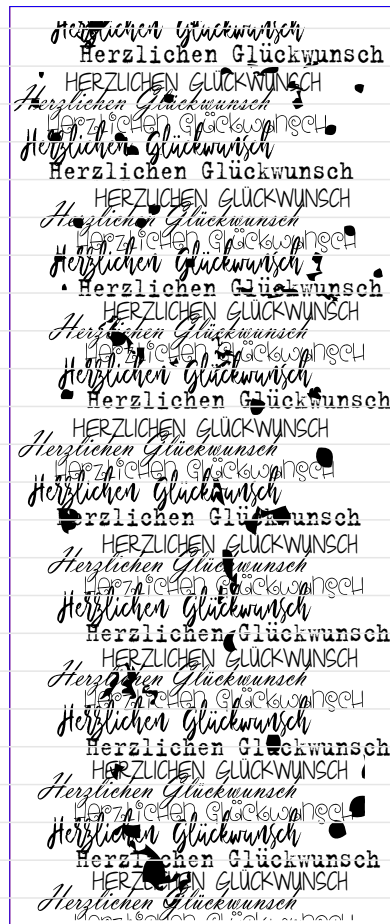 Herzlichen Glückwunsch
Herzlichen Glückwunsch
HERZLICHEN GLÜCKWUNSCH
Herzlichen Glückwunsch
Herzlichen Glückwunsch
Herzlichen Glückwunsch
Herzlichen Glückwunsch
HERZLICHEN GLÜCKWUNSCH
Herzlichen Glückwunsch
Herzlichen Glückwunsch
Herzlichen Glückwunsch
Herzlichen Glückwunsch
HERZLICHEN GLÜCKWUNSCH
Herzlichen Glückwunsch
Herzlichen Glückwunsch
Herzlichen Glückwunsch
Herzlichen Glückwunsch
HERZLICHEN GLÜCKWUNSCH
Herzlichen Glückwunsch
Herzlichen Glückwunsch
Herzlichen Glückwunsch
Herzlichen Glückwunsch
HERZLICHEN GLÜCKWUNSCH
Herzlichen Glückwunsch
Herzlichen Glückwunsch
Herzlichen Glückwunsch
Herzlichen Glückwunsch
HERZLICHEN GLÜCKWUNSCH
Herzlichen Glückwunsch
Herzlichen Glückwunsch
Herzlichen Glückwunsch
Herzlichen Glückwunsch
HERZLICHEN GLÜCKWUNSCH
Herzlichen Glückwunsch
Herzlichen Glückwunsch
Herzlichen Glückwunsch
Herzlichen Glückwunsch
HERZLICHEN GLÜCKWUNSCH
Herzlichen Glückwunsch